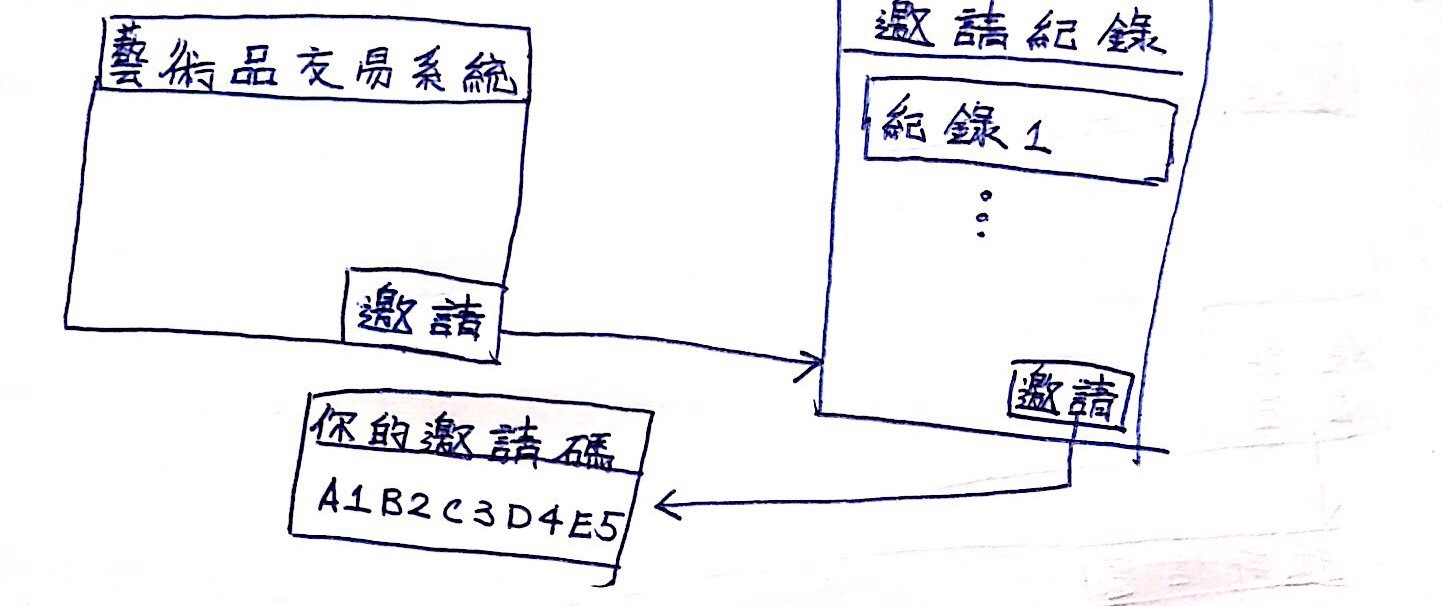 藝術品交易系統
邀請
邀請紀錄
紀錄1
邀請
你的邀請碼
A1B2C3D4E5